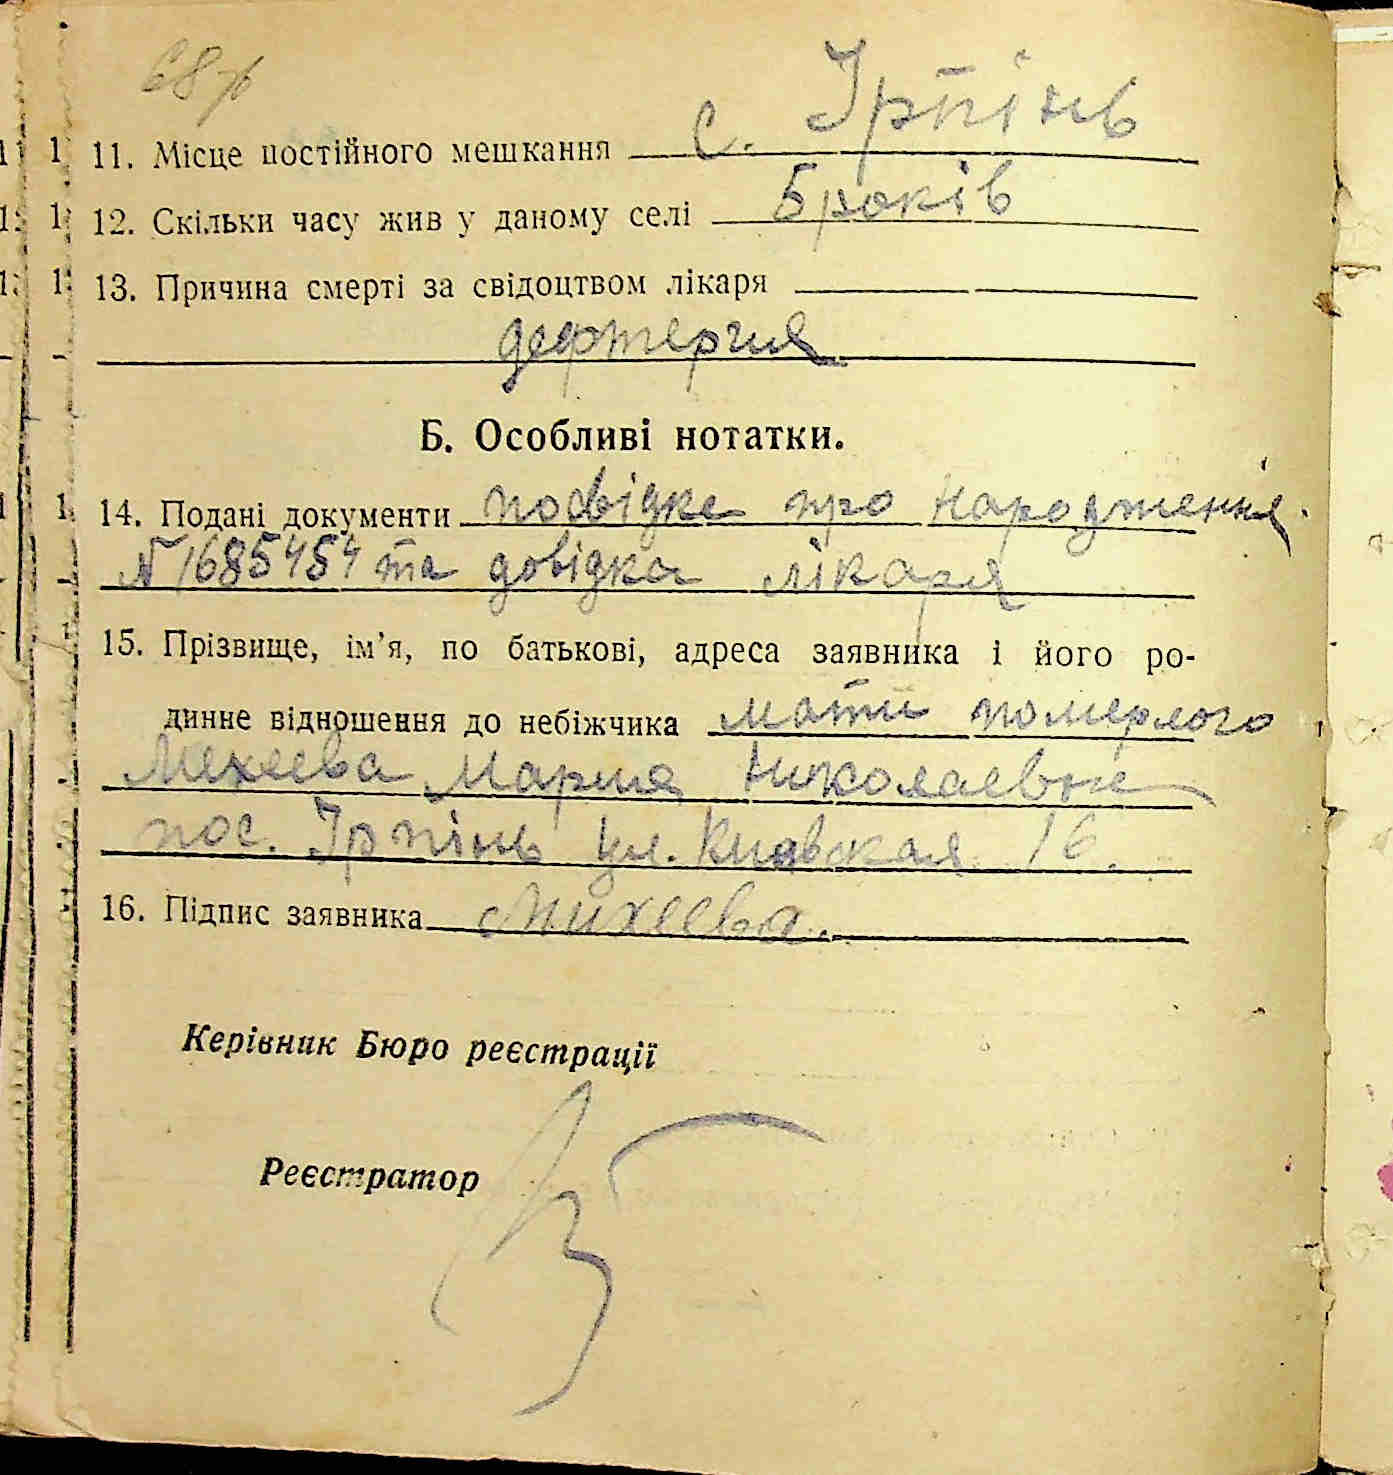 68
11. Місце постійного мешкання с. Ірпінь
12. Скільки часу жив у даному селі 5 років
13. Причина смерті за свідоцтвом лікаря
дефтергия
Б. Особливі нотатки.
14. Подані документи посвідке про народження
№ 1685454 та довідка лікаря
15. Прізвище, ім’я, по батькові, адреса заявника і його ро-
динне відношення до небіжчика мати померлого
Мехеева Мария Николаевне
пос. Ірпінь ул. Киевская 16.
16. Підпис заявника Михеева.
Керівник Бюро реєстрації
Реєстратор